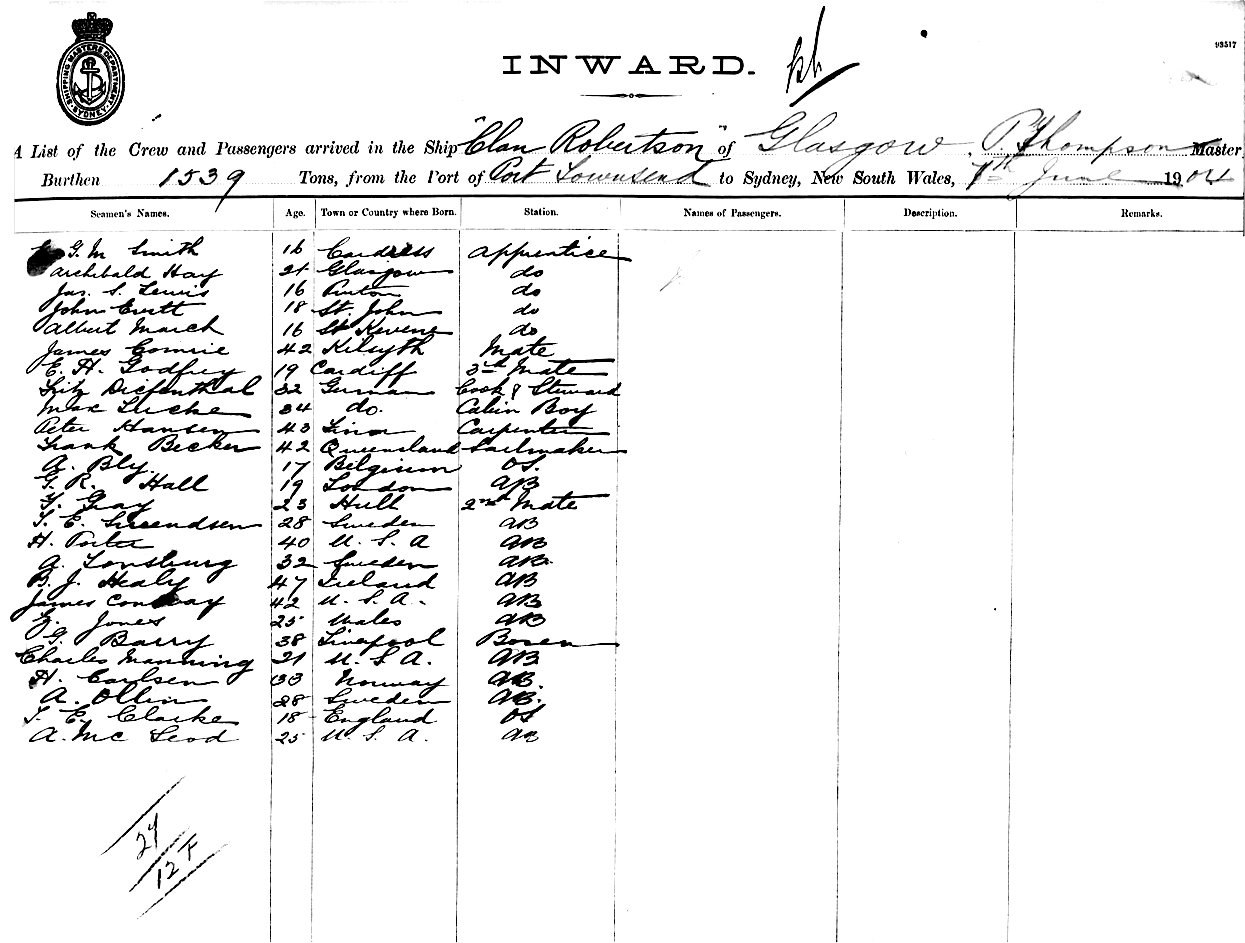 93517
SHIPPING MASTERS DEPARTMENT SYDNEY
INWARD.
A List of the Crew and Passengers arrived in the Ship "Clan Robertson" of Glasgow, P. Thompson Master
Burthen 1539 Tons, from the Port of Port Townsend to Sydney, New South Wales, 7th June 1904
Seamen's Names. Age. Town or Country where Born. Station. Names of Passengers. Description. Remarks.
G. M Smith 16 Apprentice
Archibald Hay 21 Glasgow do
Jas. S. Lewis 16 do
John 18 St. John do
Albert March 16 St Keverne do
James Comrie 42 Kilsyth Mate
E. H. Godfrey 19 Cardiff 3rd Mate
Fritz Diefenthal 32 German Cook & Steward
Max Lucke 34 do. Cabin Boy
Peter Hansen 43 Carpenter
Frank Becker 42 Queensland Sailmaker
A. Bly 17 Belgium OS.
G. R. Hall 19 London AB
Gray 23 Hull 2nd Mate
E. Swendsen 28 Sweden AB
H. Porter 40 U. S. A AB
A. 32 Sweden AB.
B. J. Healy 47 Ireland AB
James Conway 42 U. S. A. AB
Jones 25 Wales AB
G. Barry 38 Liverpool Bosen
Charles Manning 21 U. S. A. AB
H. Carlsen 33 Norway AB.
A. Ollin 28 Sweden AB.
E. Clarke 18 England OS
A. Mc Leod 25 U. S. A. AB
12 F